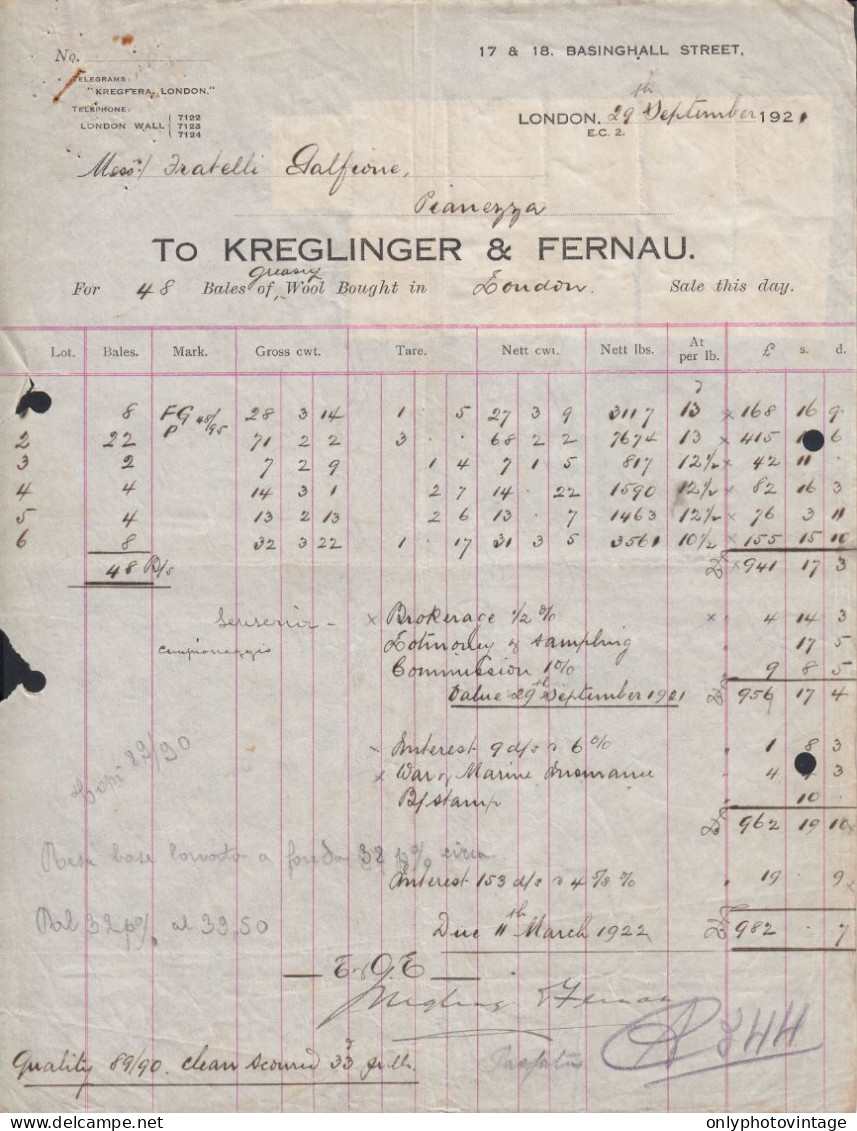 No.
17 & 18. BASINGHALL STREET,
TELEGRAMS:
"KREGFERA, LONDON."
TELEPHONE:
LONDON WALL { 7122
7123
7124
LONDON, 29th September 1921
E.C. 2.
Messrs/ Fratelli Galfione,
Pianezza
TO KREGLINGER & FERNAU.
For 48 Bales of greasy Wool Bought in London. Sale this day.
Lot. Bales. Mark. Gross cwt. Tare. Nett cwt. Nett lbs. At per lb. £ s. d.
8 FG 48/95 28 3 14 1 5 27 3 9 3117 13 × 168 16 9
2 22 P 71 2 2 3 . . 68 2 2 7674 13 × 415 6
3 2 7 2 9 1 4 7 1 5 817 12½ × 42 11 .
4 4 14 3 1 2 7 14 . 22 1590 12½ × 82 16 3
5 4 13 2 13 2 6 13 . 7 1463 12½ × 76 3 11
6 8 32 3 22 1 . 17 31 3 5 3561 10½ × 155 15 10
48 B/s £ × 941 17 3
× Brokerage ½ % × 4 14 3
campionaggio
Lotmoney & sampling 17 5
Commission 1% 9 8 5
Value 29th September 1921 £ 956 17 4
Interest 9 d/s a 6 % 1 8 3
× War & Marine Insurance 4 3
B/stamp 10
£ 962 19 10
89/90
Resa base a 32 p% circa
Interest 153 d/s a 4 7/8 % 19 . 9
32 p% al 39,50
Due 11th March 1922 £ 982 . 7
E. & O. E.
Kreglinger & Fernau
A 344
Quality 89/90. clean scoured 33d p lb.
www.delcampe.net
onlyphotovintage